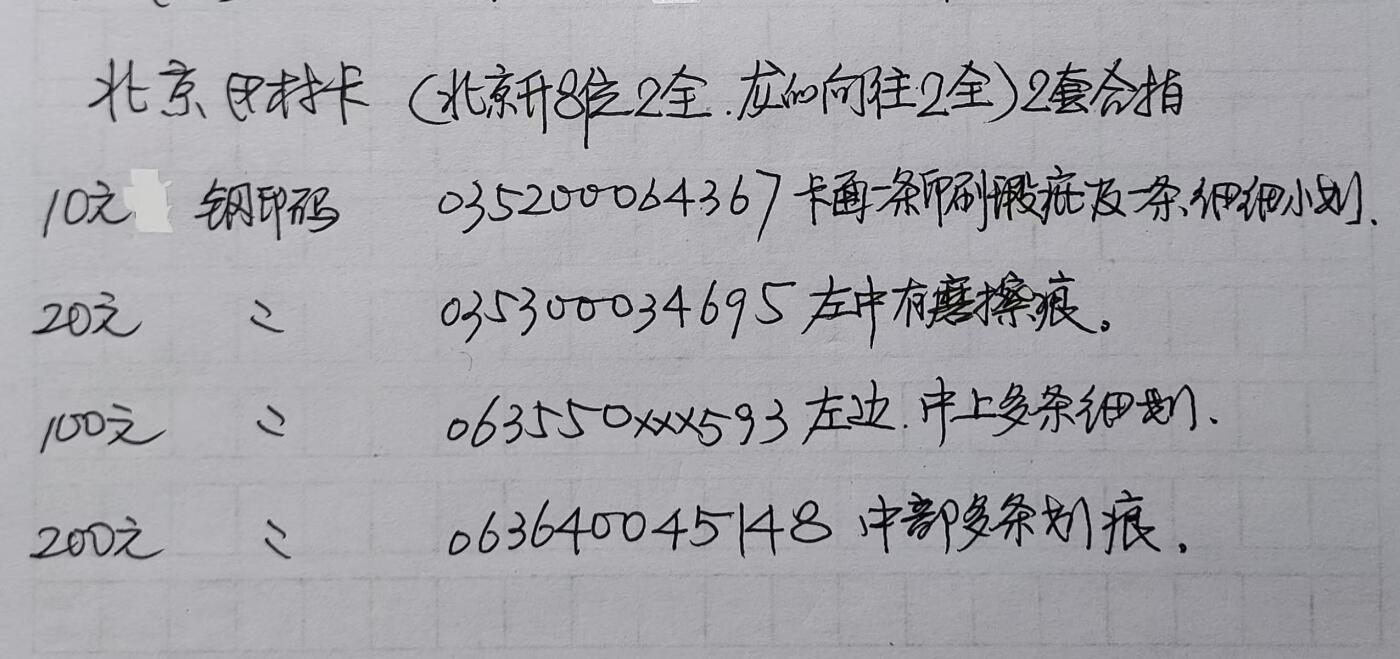 北京田村卡（北京开8位2全.龙的向往2全)2套合指
10元 钢印码 035200064367卡面一条印刷瑕疵及一条细细小划.
20元 〃 035300034695左中有磨擦痕。
100元 〃 063550xxx593左边.中上多条细划.
200元 〃 063640045148中部多条划痕.